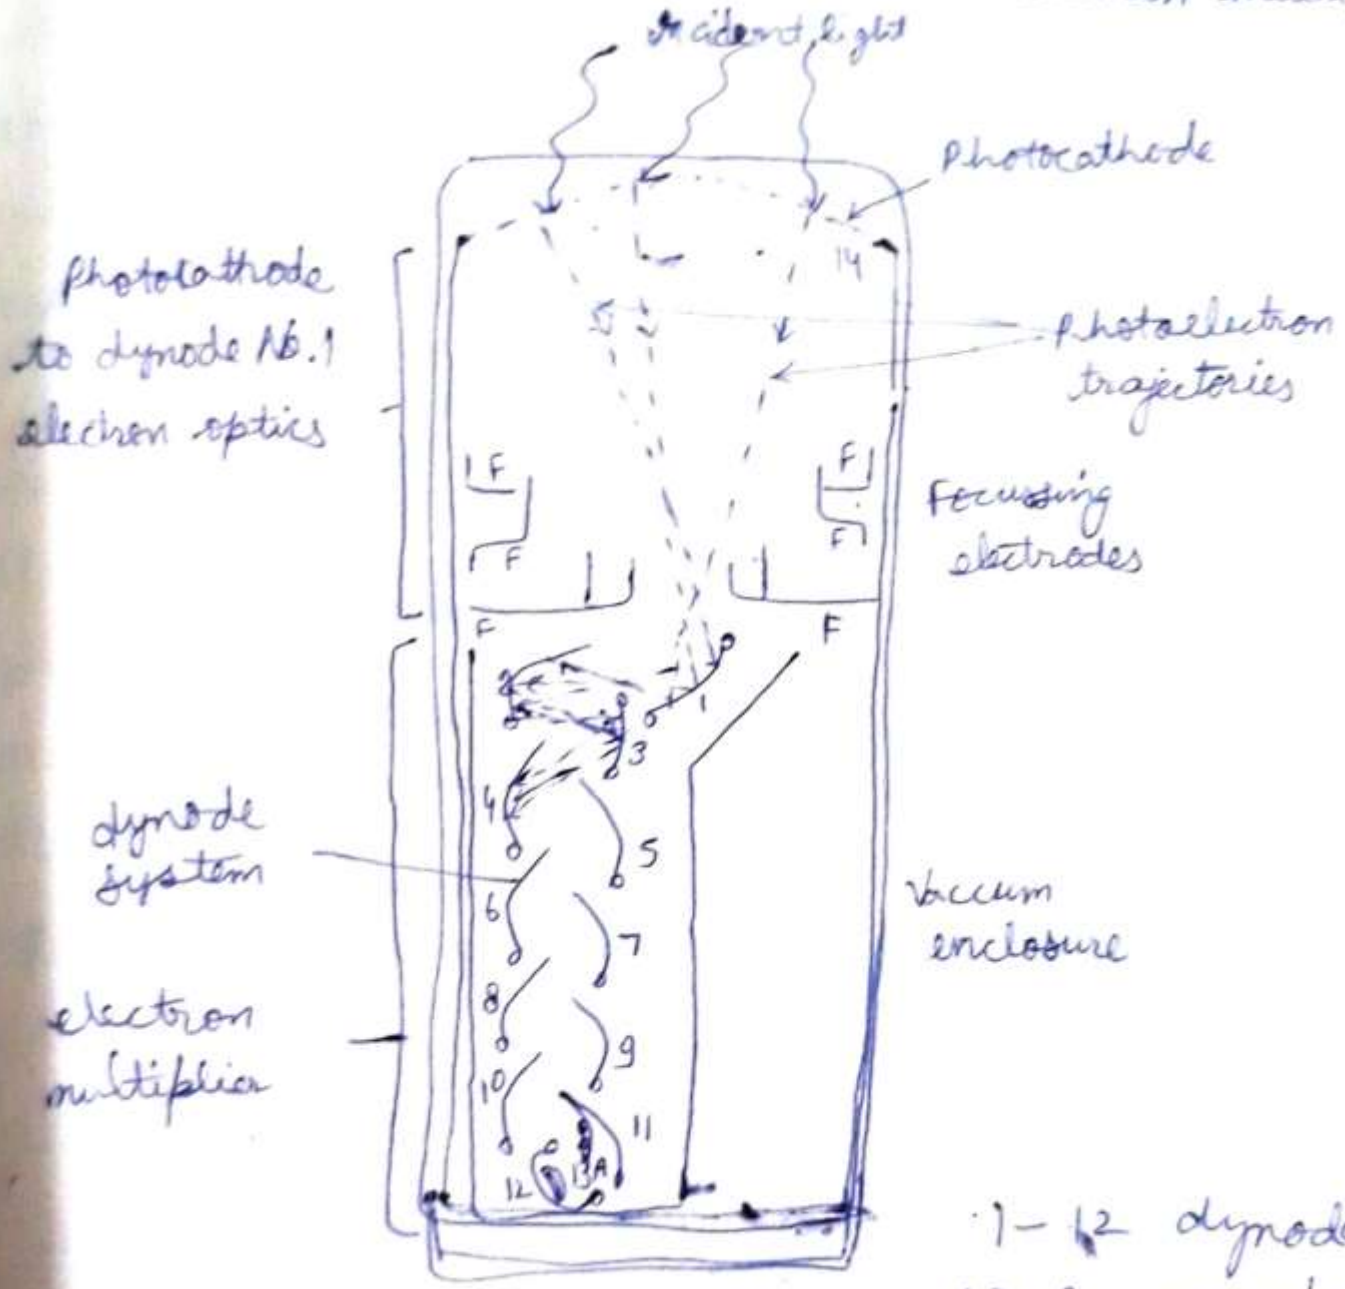 Incident light
Photocathode
14
Photocathode
to dynode No.1
electron optics
Photoelectron
trajectories
F
F
F
F
Focussing
electrodes
F
F
2
1
3
4
dynode
system
5
6
Vaccum
enclosure
7
8
electron
multiplier
9
10
11
12
13A
1-12 dynod